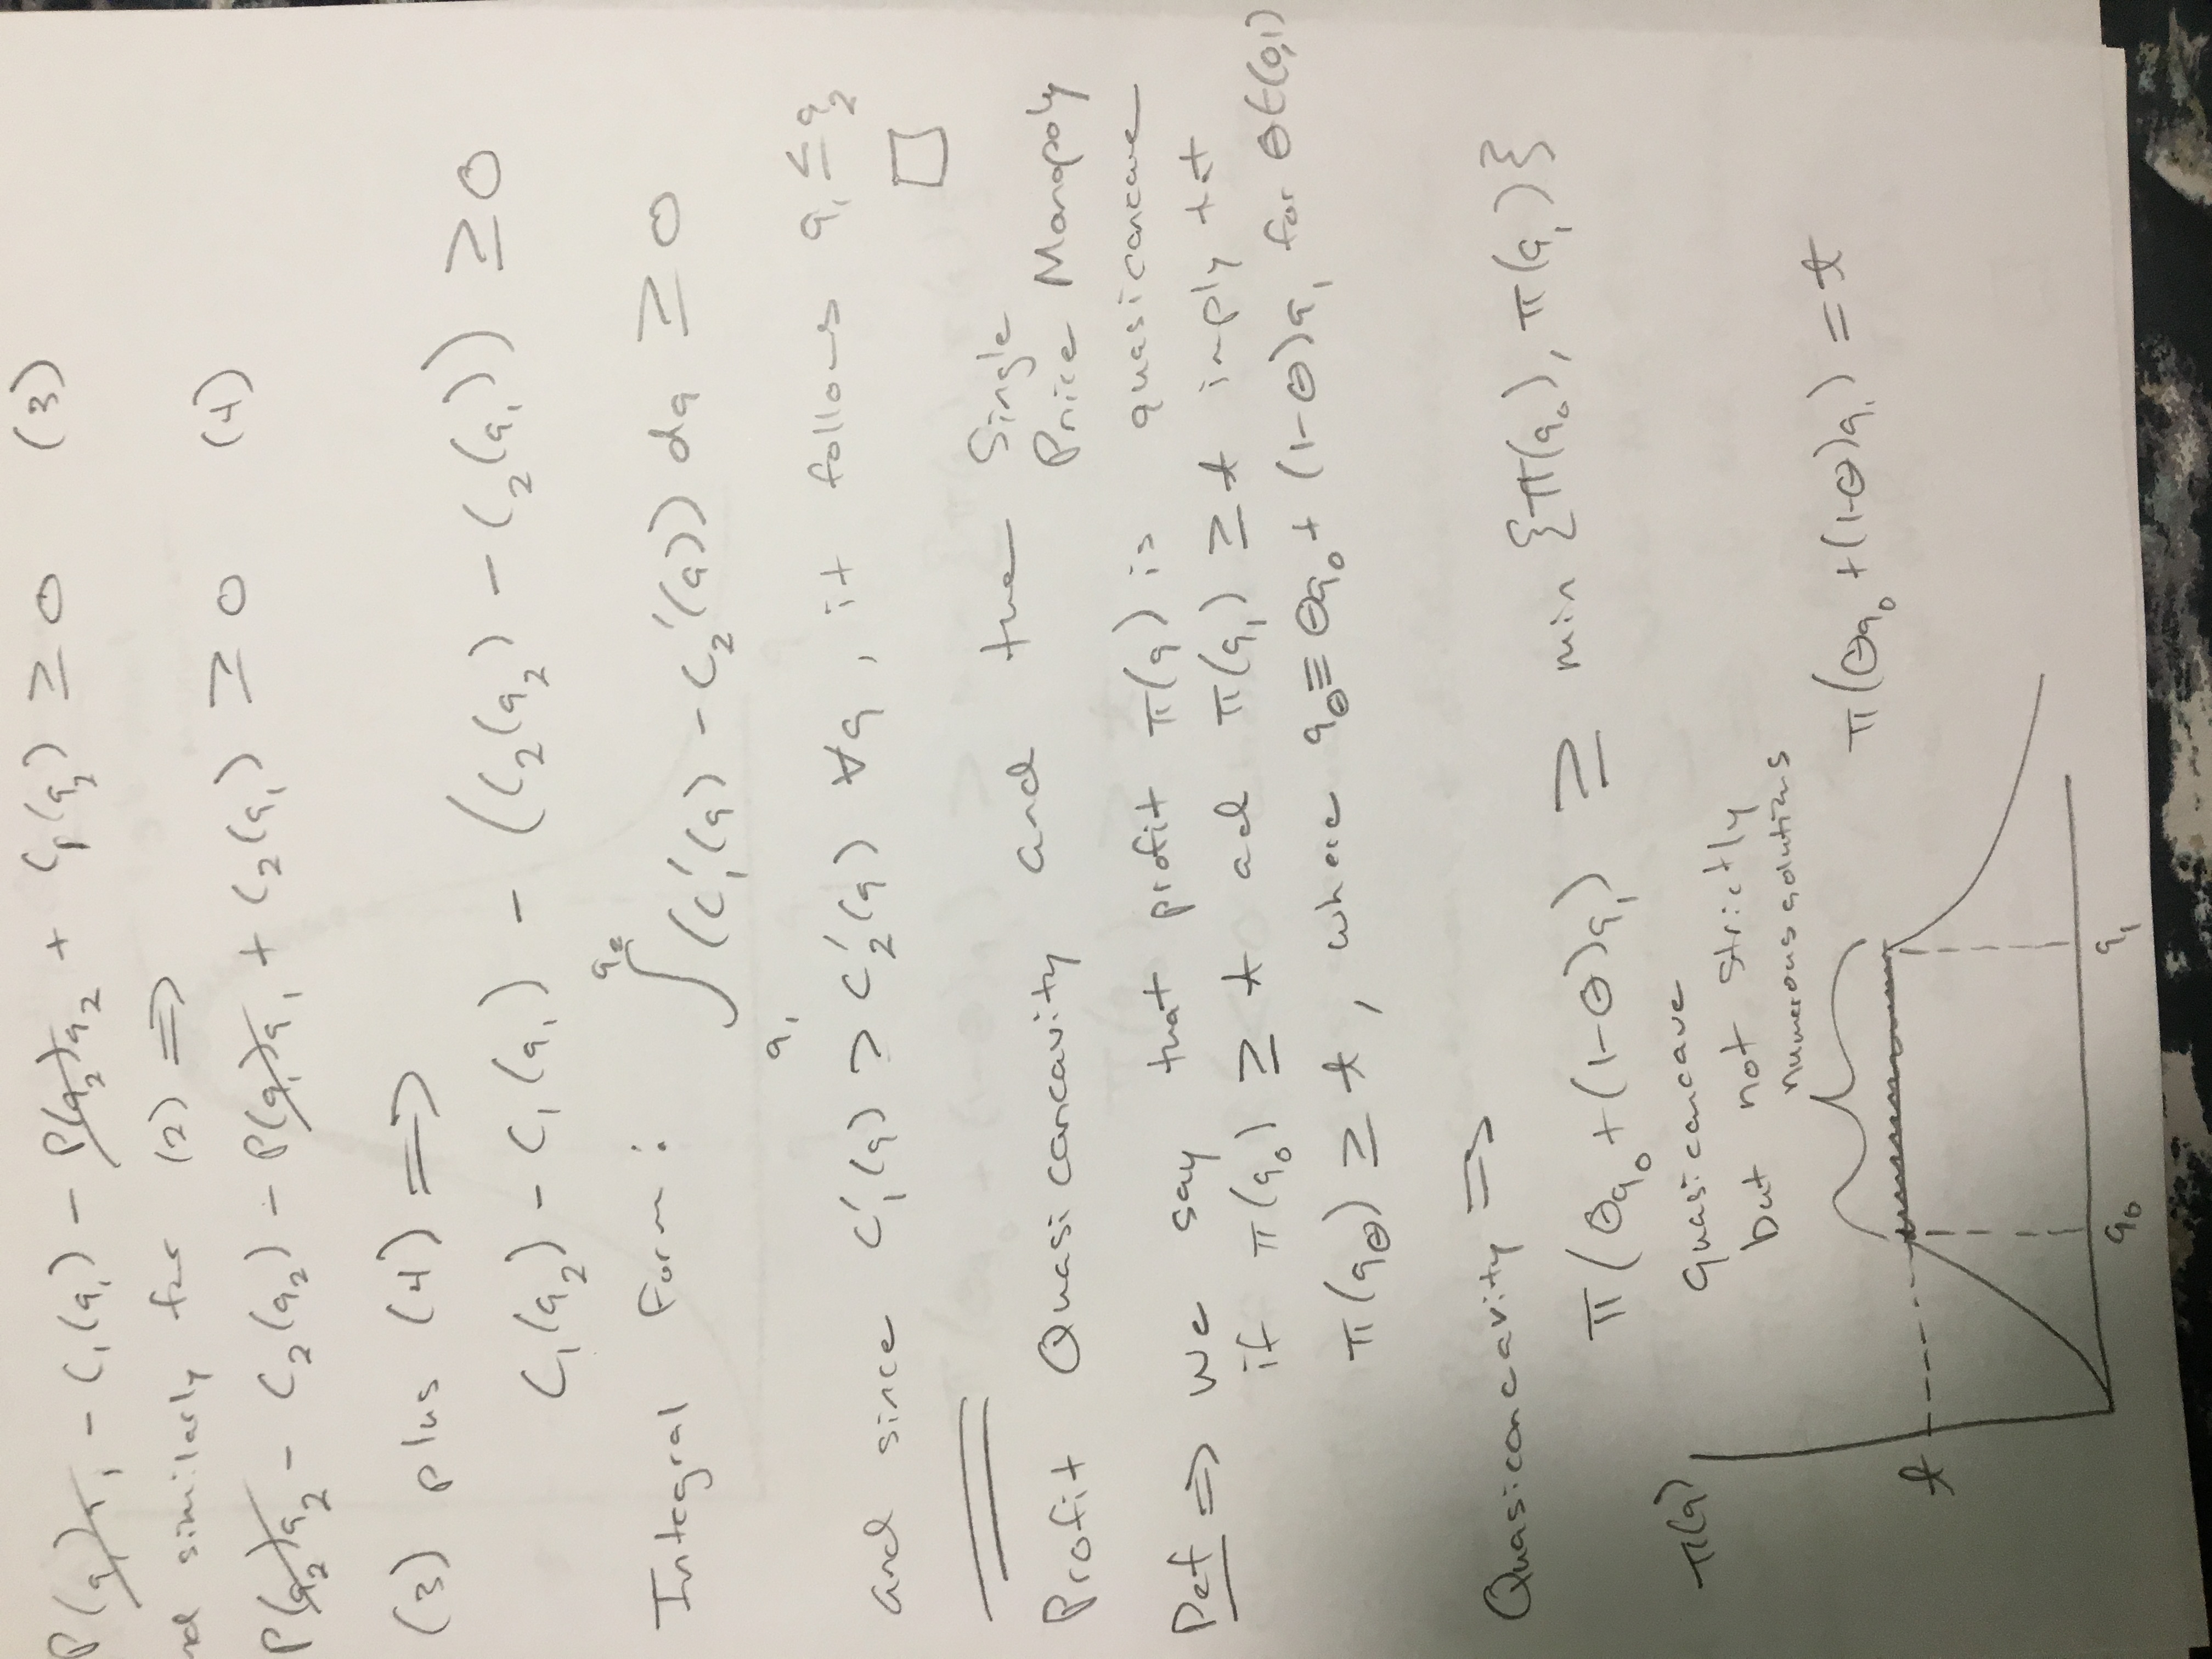 P(q₁)q₁ - C₁(q₁) - P(q₂)q₂ + C₁(q₂) ≥ 0 (3)
nd similarly for (2) ⇒
P(q₂)q₂ - C₂(q₂) - P(q₁)q₁ + C₂(q₁) ≥ 0 (4)
(3) plus (4) ⇒
C₁(q₂) - C₁(q₁) - (C₂(q₂) - C₂(q₁)) ≥ 0
Integral Form: ∫_{q₁}^{q₂} (C₁'(q) - C₂'(q)) dq ≥ 0
and since C₁'(q) > C₂'(q) ∀q, it follows q₁ ≤ q₂
□
Profit Quasiconcavity and the Single
Price Monopoly
Def ⇒ We say that profit π(q) is quasiconcave
if π(q₀) ≥ t ad π(q₁) ≥ t imply tat
π(q_θ) ≥ t, where q_θ ≡ θq₀ + (1-θ)q₁ for θ∈(0,1)
Quasiconcavity ⇒
π(θq₀ + (1-θ)q₁) ≥ min {π(q₀), π(q₁)}
π(q)
Quasiconcave
but not strictly
numerous solutions
π(θq₀ + (1-θ)q₁) = t
t
q₀ q₁